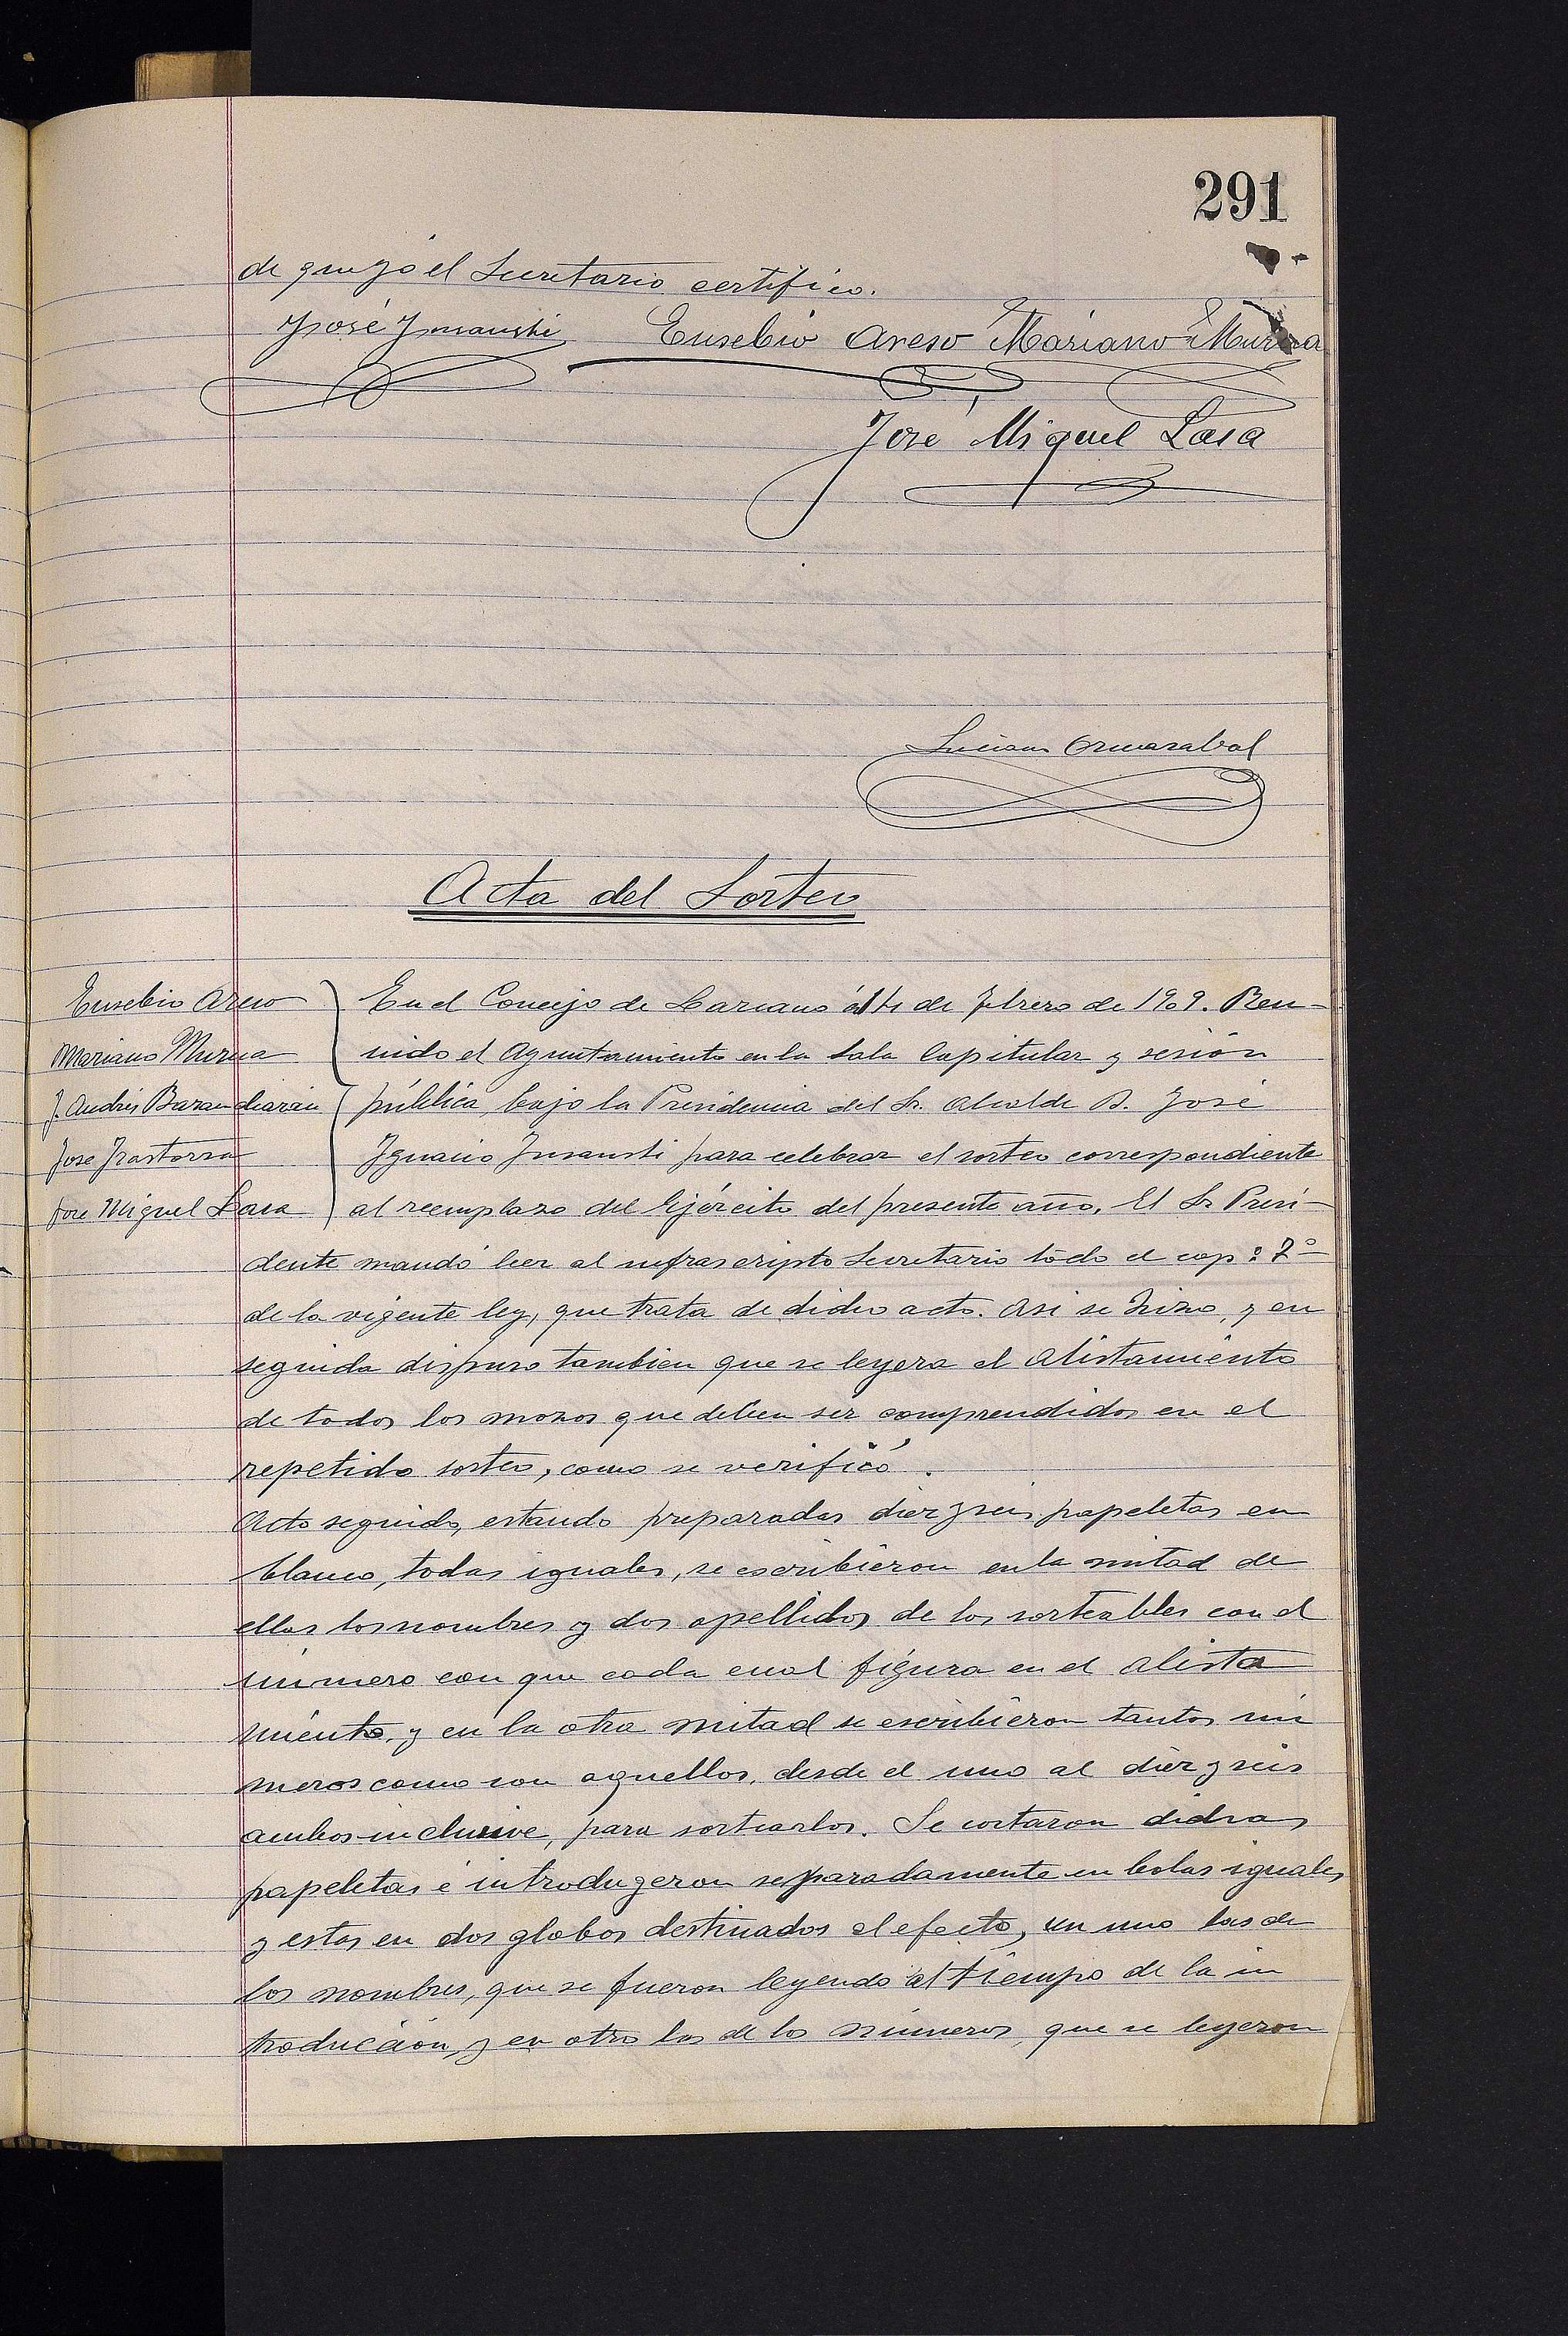 291
de que yo el Secretario certifico.
José Insausti Eusebio Areso Mariano Murua
José Miguel Lasa
Luciano Ormazabal
Acta del Sorteo
Eusebio Areso
Mariano Murua
J. Andrés Barandiarán
José Irastorza
José Miguel Lasa
En el Concejo de Lazcano á 14 de Febrero de 1909. Reu-
nido el Ayuntamiento en la Sala Capitular y sesión
pública, bajo la Presidencia del Sr. Alcalde D. José
Ignacio Insausti para celebrar el sorteo correspondiente
al reemplazo del Ejército del presente año, El Sr. Presi-
dente mandó leer al infrascripto Secretario todo el cap.º 7º
de la vigente ley, que trata de dicho acto. Asi se hizo, y en
seguida dispuso tambien que se leyera el Alistamiento
de todos los mozos que deben ser comprendidos en el
repetido sorteo, como se verificó.
Acto seguido, estando preparadas diez y seis papeletas en
blanco, todas iguales, se escribieron en la mitad de
ellas los nombres y dos apellidos de los sorteables con el
número con que cada cual figura en el alista
miento, y en la otra mitad se escribieron tantos nú
meros como son aquellos, desde el uno al diez y seis
ambos inclusive, para sortearlos. Se cortaron dichas
papeletas é introdugeron separadamente en bolas iguales,
y estas en dos globos destinados al efecto, en uno las de
los nombres, que se fueron leyendo al tiempo de la in
troducción, y en otro las de los números, que se leyeron